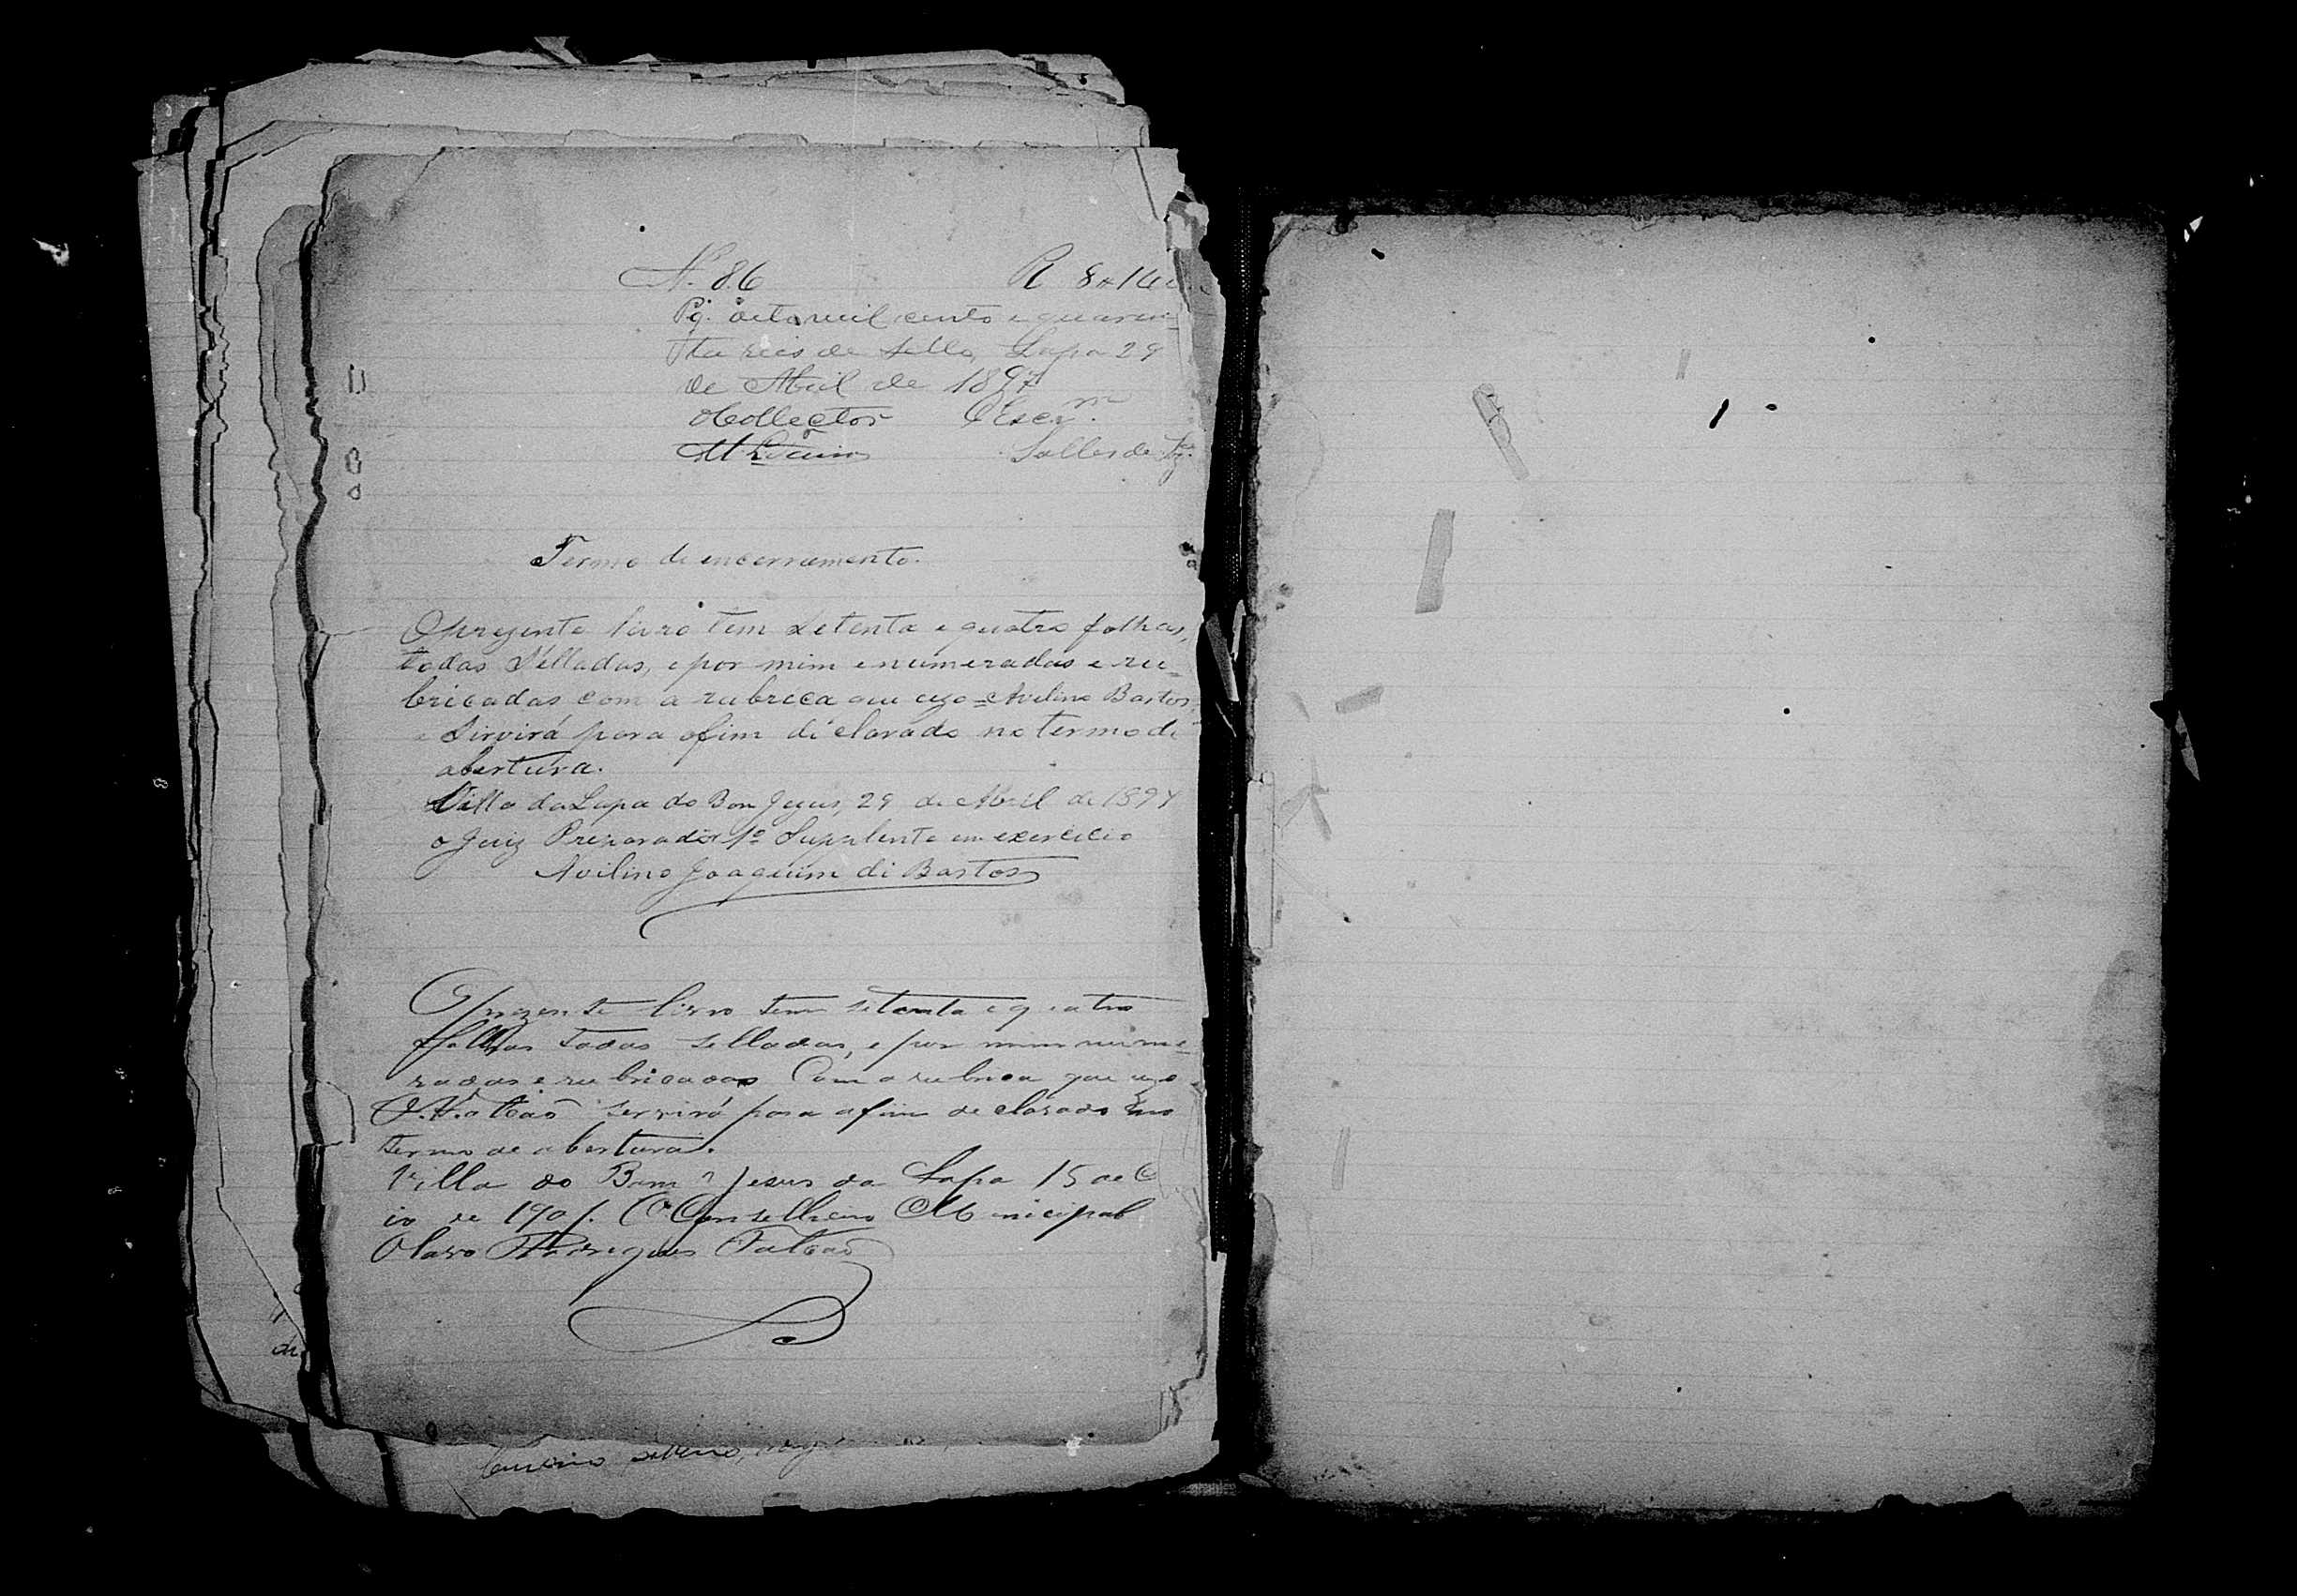 N. 86 R 8#14
Pg. oito mil cento e quaren-
ta reis de Sello, Lapa 29
de Abril de 1897
O Collector O Escr.m
Salles de
Termo di encerramento.
O prezente livro tem setenta e quatro folhas,
todas Selladas, e por mim enumeradas e ru-
bricadas com a rubrica que uzo = Avelino Bastos,
e Sirvirá para o fim diclarado no termo di
abertura.
Villa da Lapa do Bom Jezus, 29 di Abril di 1897
o Juiz Preparador 1º Supplente em exercicio
Avilino Joaquim di Bastos
O prezente livro tem setenta e quatro
folhas todas selladas, e por mim nume-
radas e rubricadas Com a rubrica que uzo
Falcão servirá para o fim declarado no
termo de abertura.
Villa do Bom Jesus da Lapa 15 de
de 1901. O Conselheiro Municipal
Olavo Rodrigues Falcão